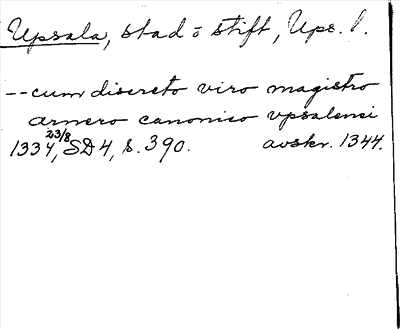 Upsala, stad o stift, Ups. l.
--cum discreto viro magistro
arnero canonico vpsalensi
1334, 23/8 SD 4, s. 390. avskr. 1344.